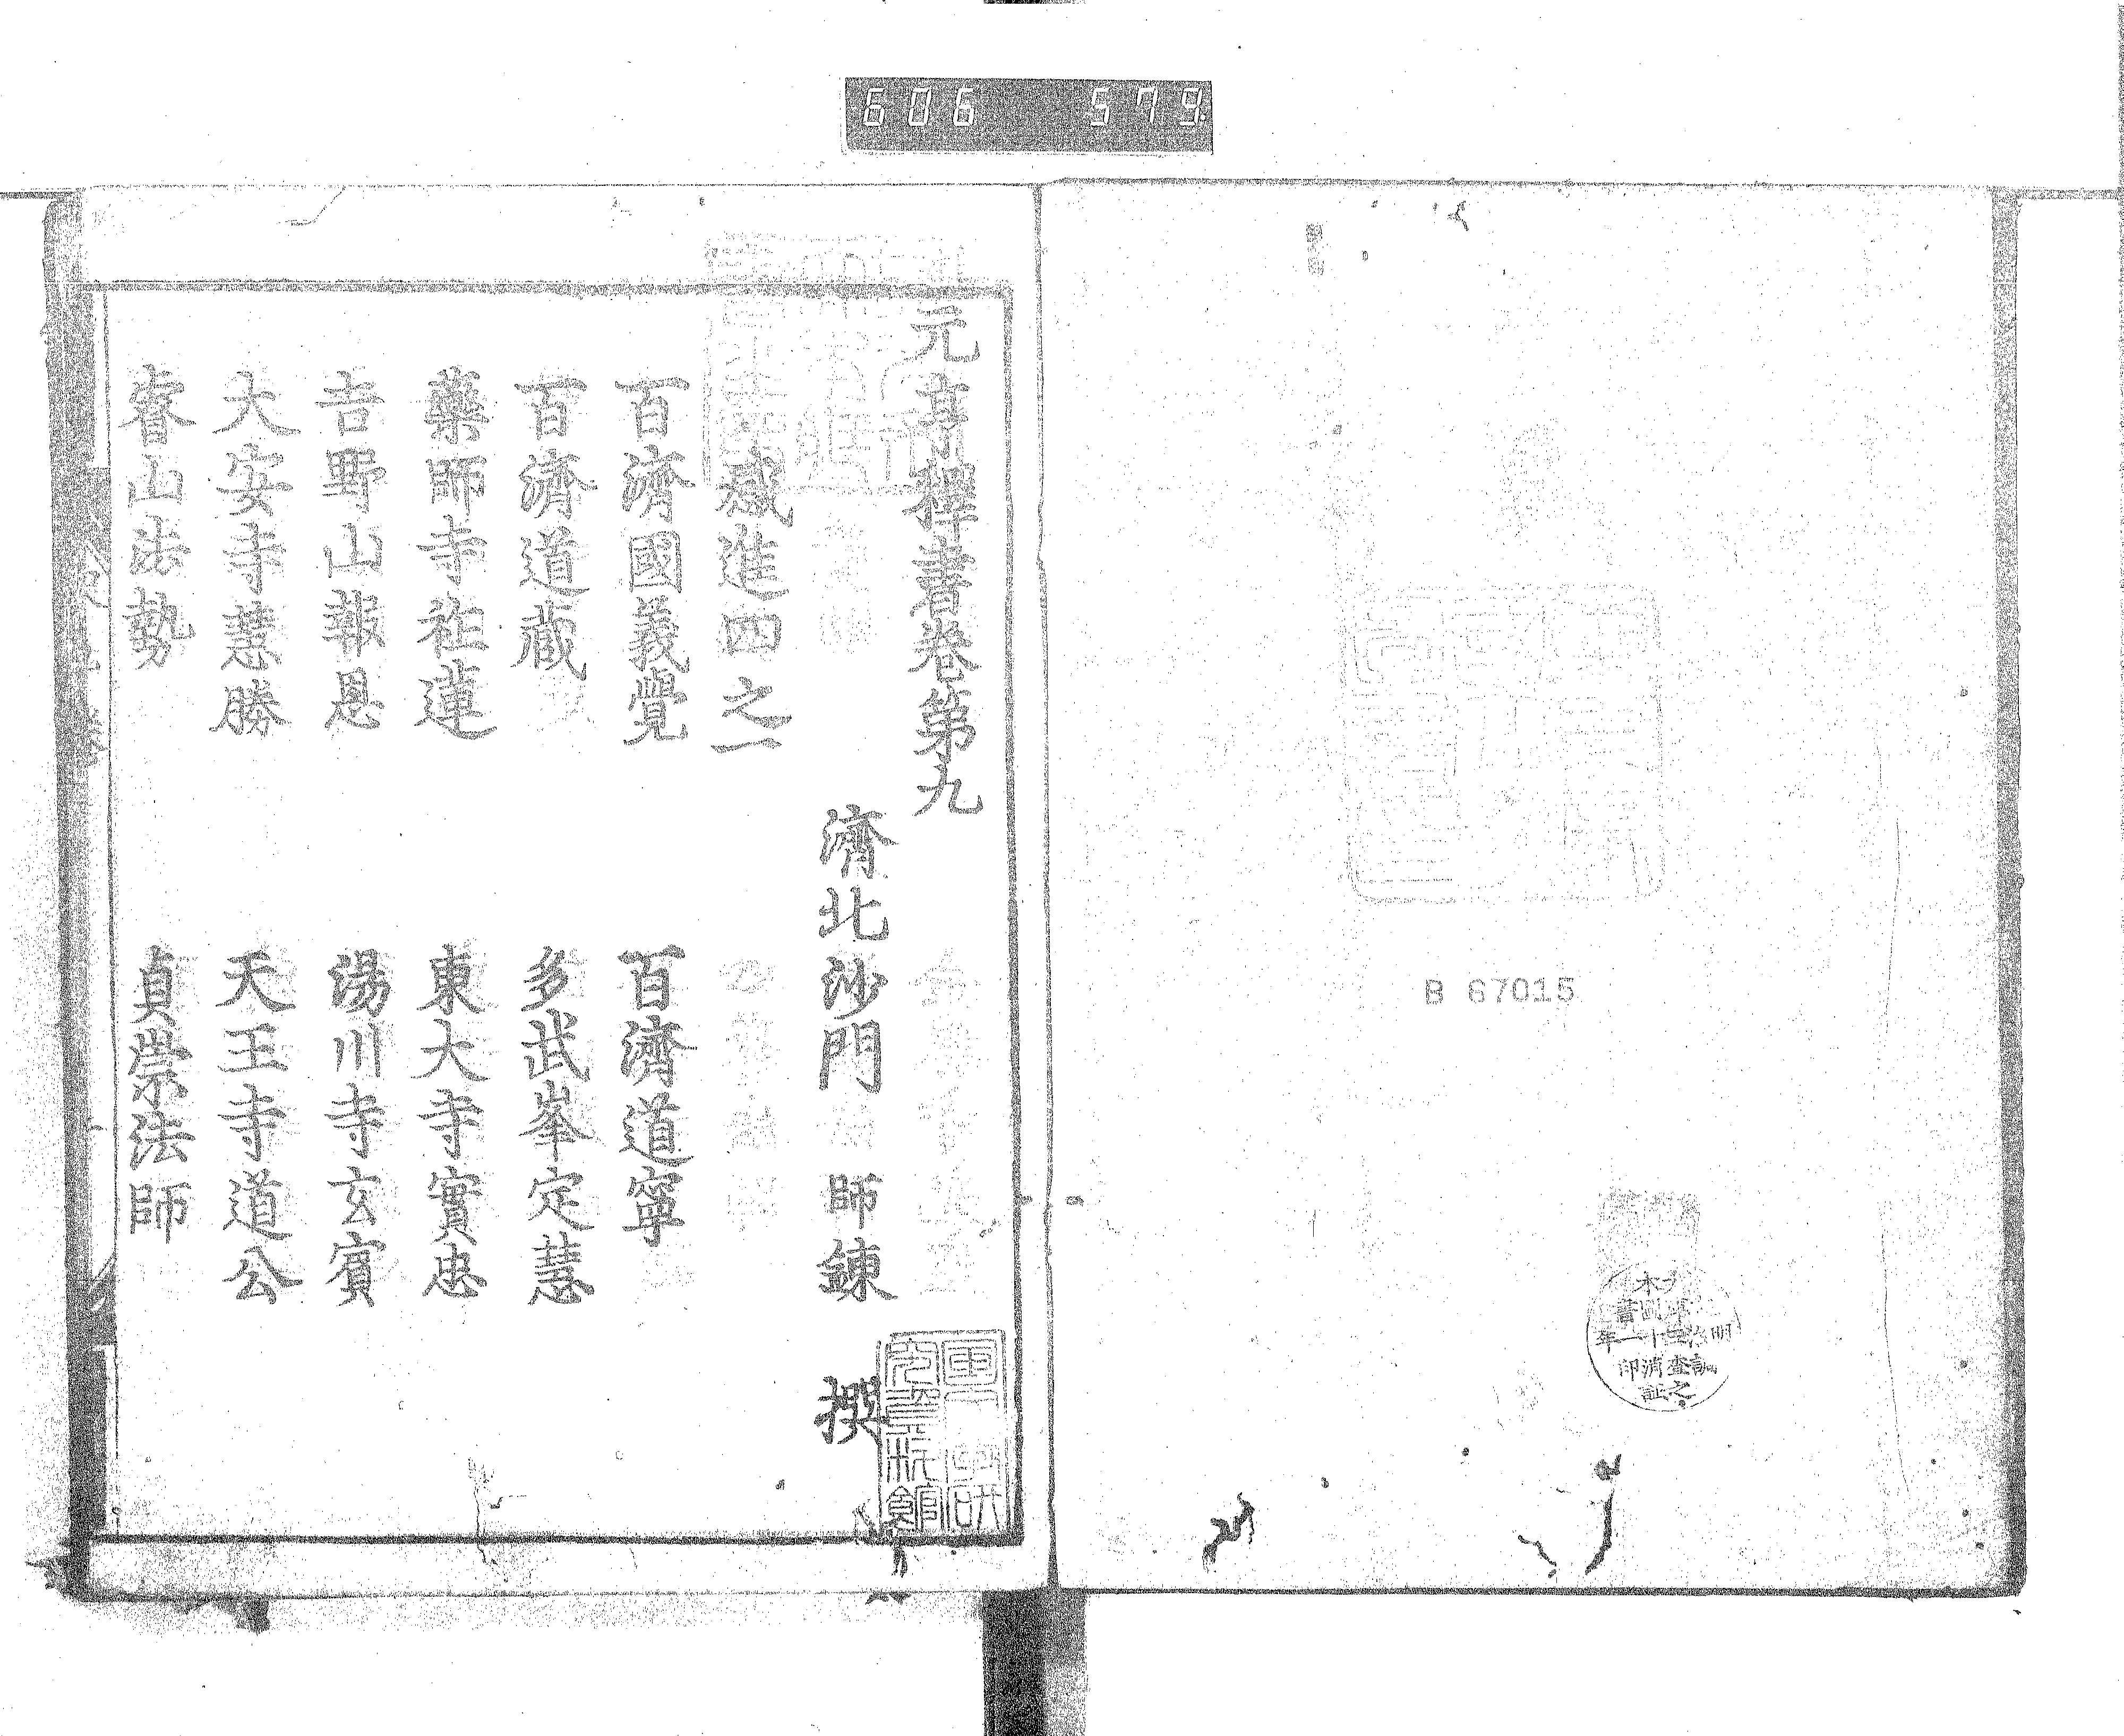 606 579
B 67015
元亨釋書卷第九
濟北沙門 師錬 撰
感進四之一
百濟國義覺 百濟道寧
百濟道藏 多武峯定慧
藥師寺祚蓮 東大寺實忠
吉野山報恩 湯川寺玄賓
大安寺慧勝 天王寺道公
睿山法勢 貞崇法師